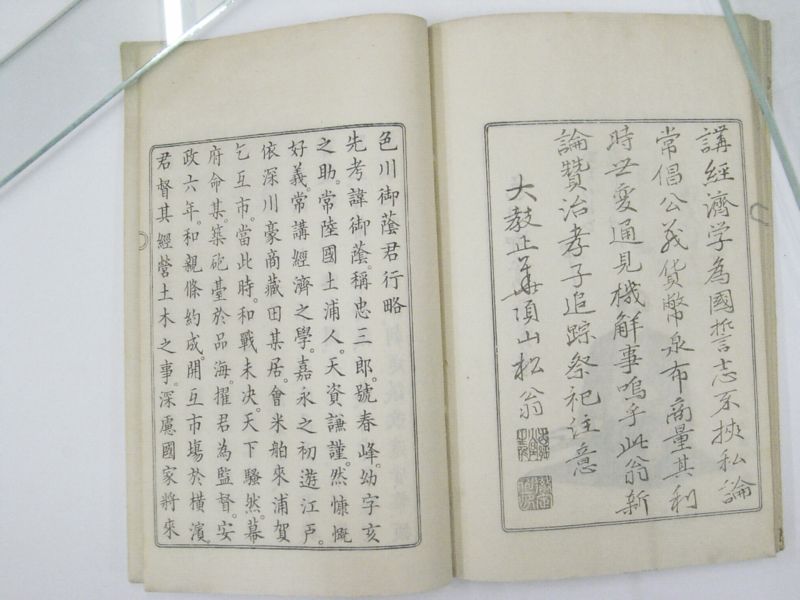 講経濟学為國誓志不挾私論
常倡公義貨幣泉布商量其利
時世変通見機解事嗚乎此翁新
論贊治孝子追踪祭祀注意
大教正華頂山松翁
色川御蔭君行略
先考諱御蔭。稱忠三郎。號春峰。幼字亥
之助。常陸國土浦人。天資謙謹。然慷慨
好義。常講經濟之學。嘉永之初遊江戸。
依深川豪商藏田某居。會米舶來浦賀
乞互市。當此時。和戰未决。天下騷然。幕
府命某。築砲臺於品海。擢君為監督。安
政六年。和親條約成。開互市塲於橫濱。
君督其經營土木之事。深慮國家將來